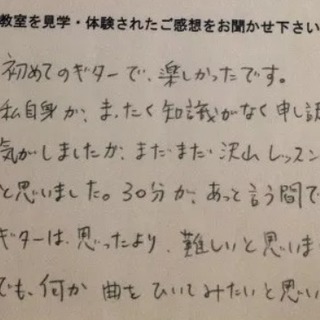 教室を見学・体験されたご感想をお聞かせ下さい
初めてのギターで、楽しかったです。
私自身が、まったく知識がなく申し訳
気がしましたが、まだまだ沢山レッスン
と思いました。30分が、あっと言う間で
ギターは、思ったより、難しいと思いま
でも、何か曲をひいてみたいと思い